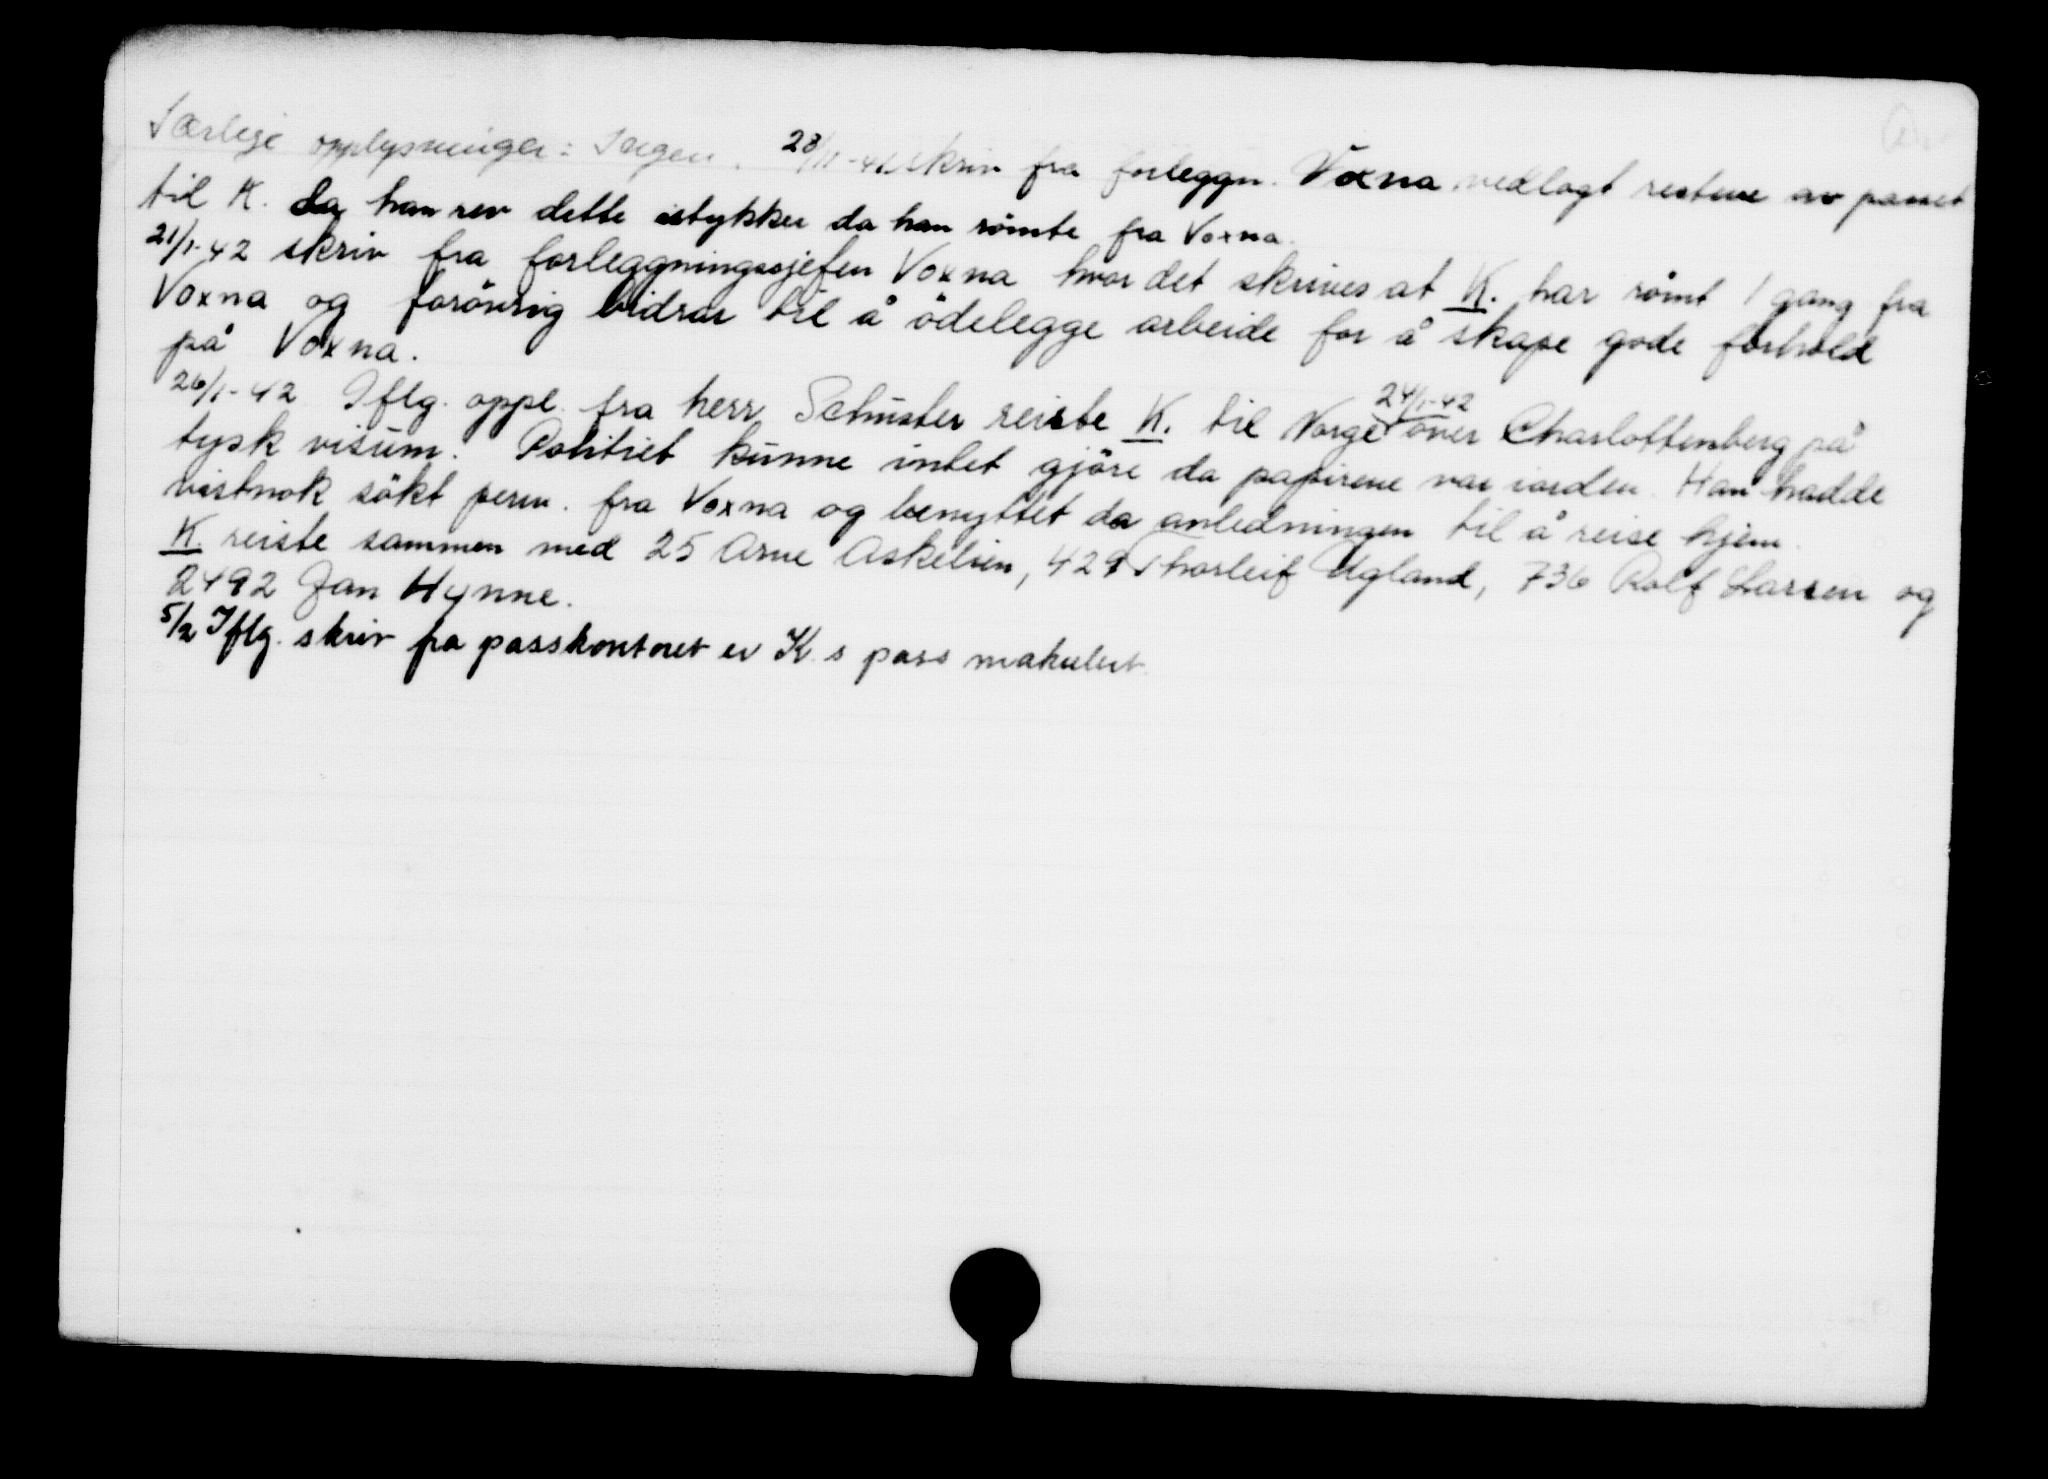 Særlige opplysninger: Ingen. 28/11-41 skriv fra forleggn. Voxna vedlagt restene av passet
til K. da han rev dette istykker da han rømte fra Voxna.
21/1-42 skriv fra forleggningssjefen Voxna hvor det skrives at K. har römt 1 gang fra
Voxna og forövrig bidrar til å ödelegge arbeide for å skape gode forhold
på Voxna.
26/1-42 Iflg. oppl. fra herr Schuster reiste K. til Norge 24/1-42 over Charlottenberg på
tysk visum. Politiet kunne intet gjöre da papirene var iorden. Han hadde
vistnok sökt perm. fra Voxna og benyttet da anledningen til å reise hjem.
K. reiste sammen med 25 Arne Askelsen, 429 Thorleif Ugland, 736 Rolf Larsen og
2492 Jan Hynne.
5/2 Iflg. skriv fra passkontoret er K.s pass makulert.